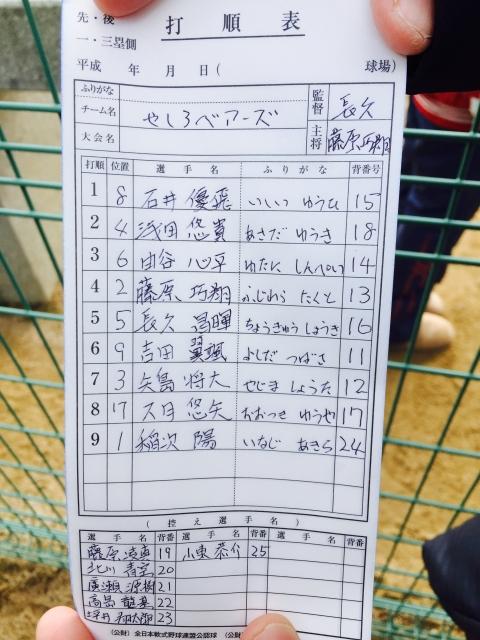 先・後 打順表
一・三塁側
平成 年 月 日( 球場)
ふりがな 監督 長久
チーム名 やしろベアーズ
大会名 主将 藤原巧翔
打順 位置 選手名 ふりがな 背番号
1 8 石井 優飛 いしい ゆうひ 15
2 4 浅田 悠貴 あさだ ゆうき 18
3 6 由谷 心平 ゆたに しんぺい 14
4 2 藤原 巧翔 ふじわら たくと 13
5 5 長久 昌暉 ちょうきゅう しょうき 16
6 9 吉田 翼颯 よしだ つばさ 11
7 3 矢島 将大 やじま しょうた 12
8 17 大日 悠矢 おおつき ゆうや 17
9 1 稲次 陽 いなじ あきら 24
(控え選手名)
選手名 背番 選手名 背番 選手名 背番
藤原 19 小東 恭介 25
北川 青空 20
廣瀬 源樹 21
高島 22
23
(公財)全日本軟式野球連盟公認球 (公財)